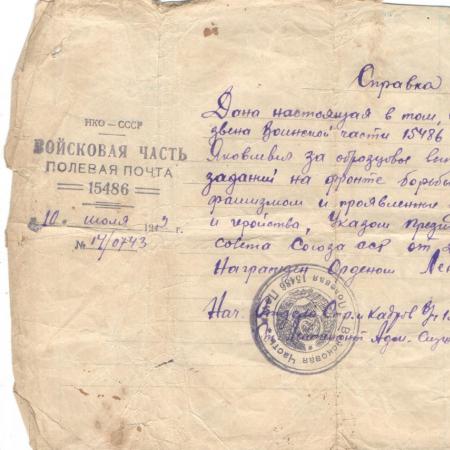 НКО — СССР
ВОЙСКОВАЯ ЧАСТЬ
ПОЛЕВАЯ ПОЧТА
15486
10 июля 1943 г.
№ 17/0743
Справка
Дана настоящая в том,
звена Воинской части 15486
за образцовое вып
заданий на фронте борьбы
фашизмом и проявленные
и геройства, Указом Прези
совета Союза ССР от
Награжден Орденом Лен
Нач. Стр. и Кадров
Адм. Служ
Войсковая Часть Полевая Почта 15486